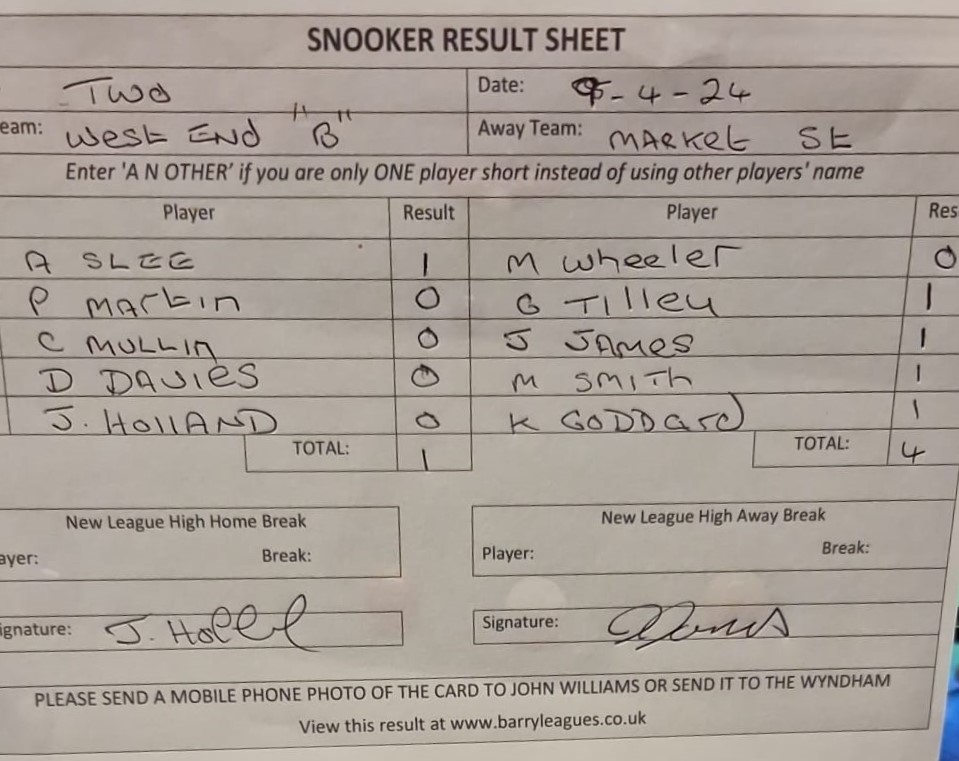 SNOOKER RESULT SHEET
TWO Date: -4-24
eam: West END "B" Away Team: MARKET St
Enter 'A N OTHER' if you are only ONE player short instead of using other players' name
Player Result Player Res
A SLEE 1 M Wheeler 0
P MARtin 0 G TIlley 1
C MULLIN 0 J JAMES 1
D DAVIES 0 M SMITh 1
J. HOllAND 0 K GODDard 1
TOTAL: 1 TOTAL: 4
New League High Home Break New League High Away Break
ayer: Break: Player: Break:
ignature: J. Holl Signature:
PLEASE SEND A MOBILE PHONE PHOTO OF THE CARD TO JOHN WILLIAMS OR SEND IT TO THE WYNDHAM
View this result at www.barryleagues.co.uk